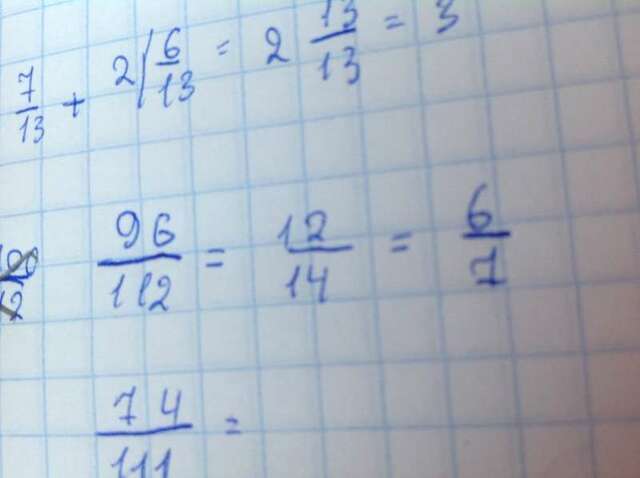 7/13 + 2 6/13 = 2 13/13 = 3
96/112 = 12/14 = 6/7
74/111 =